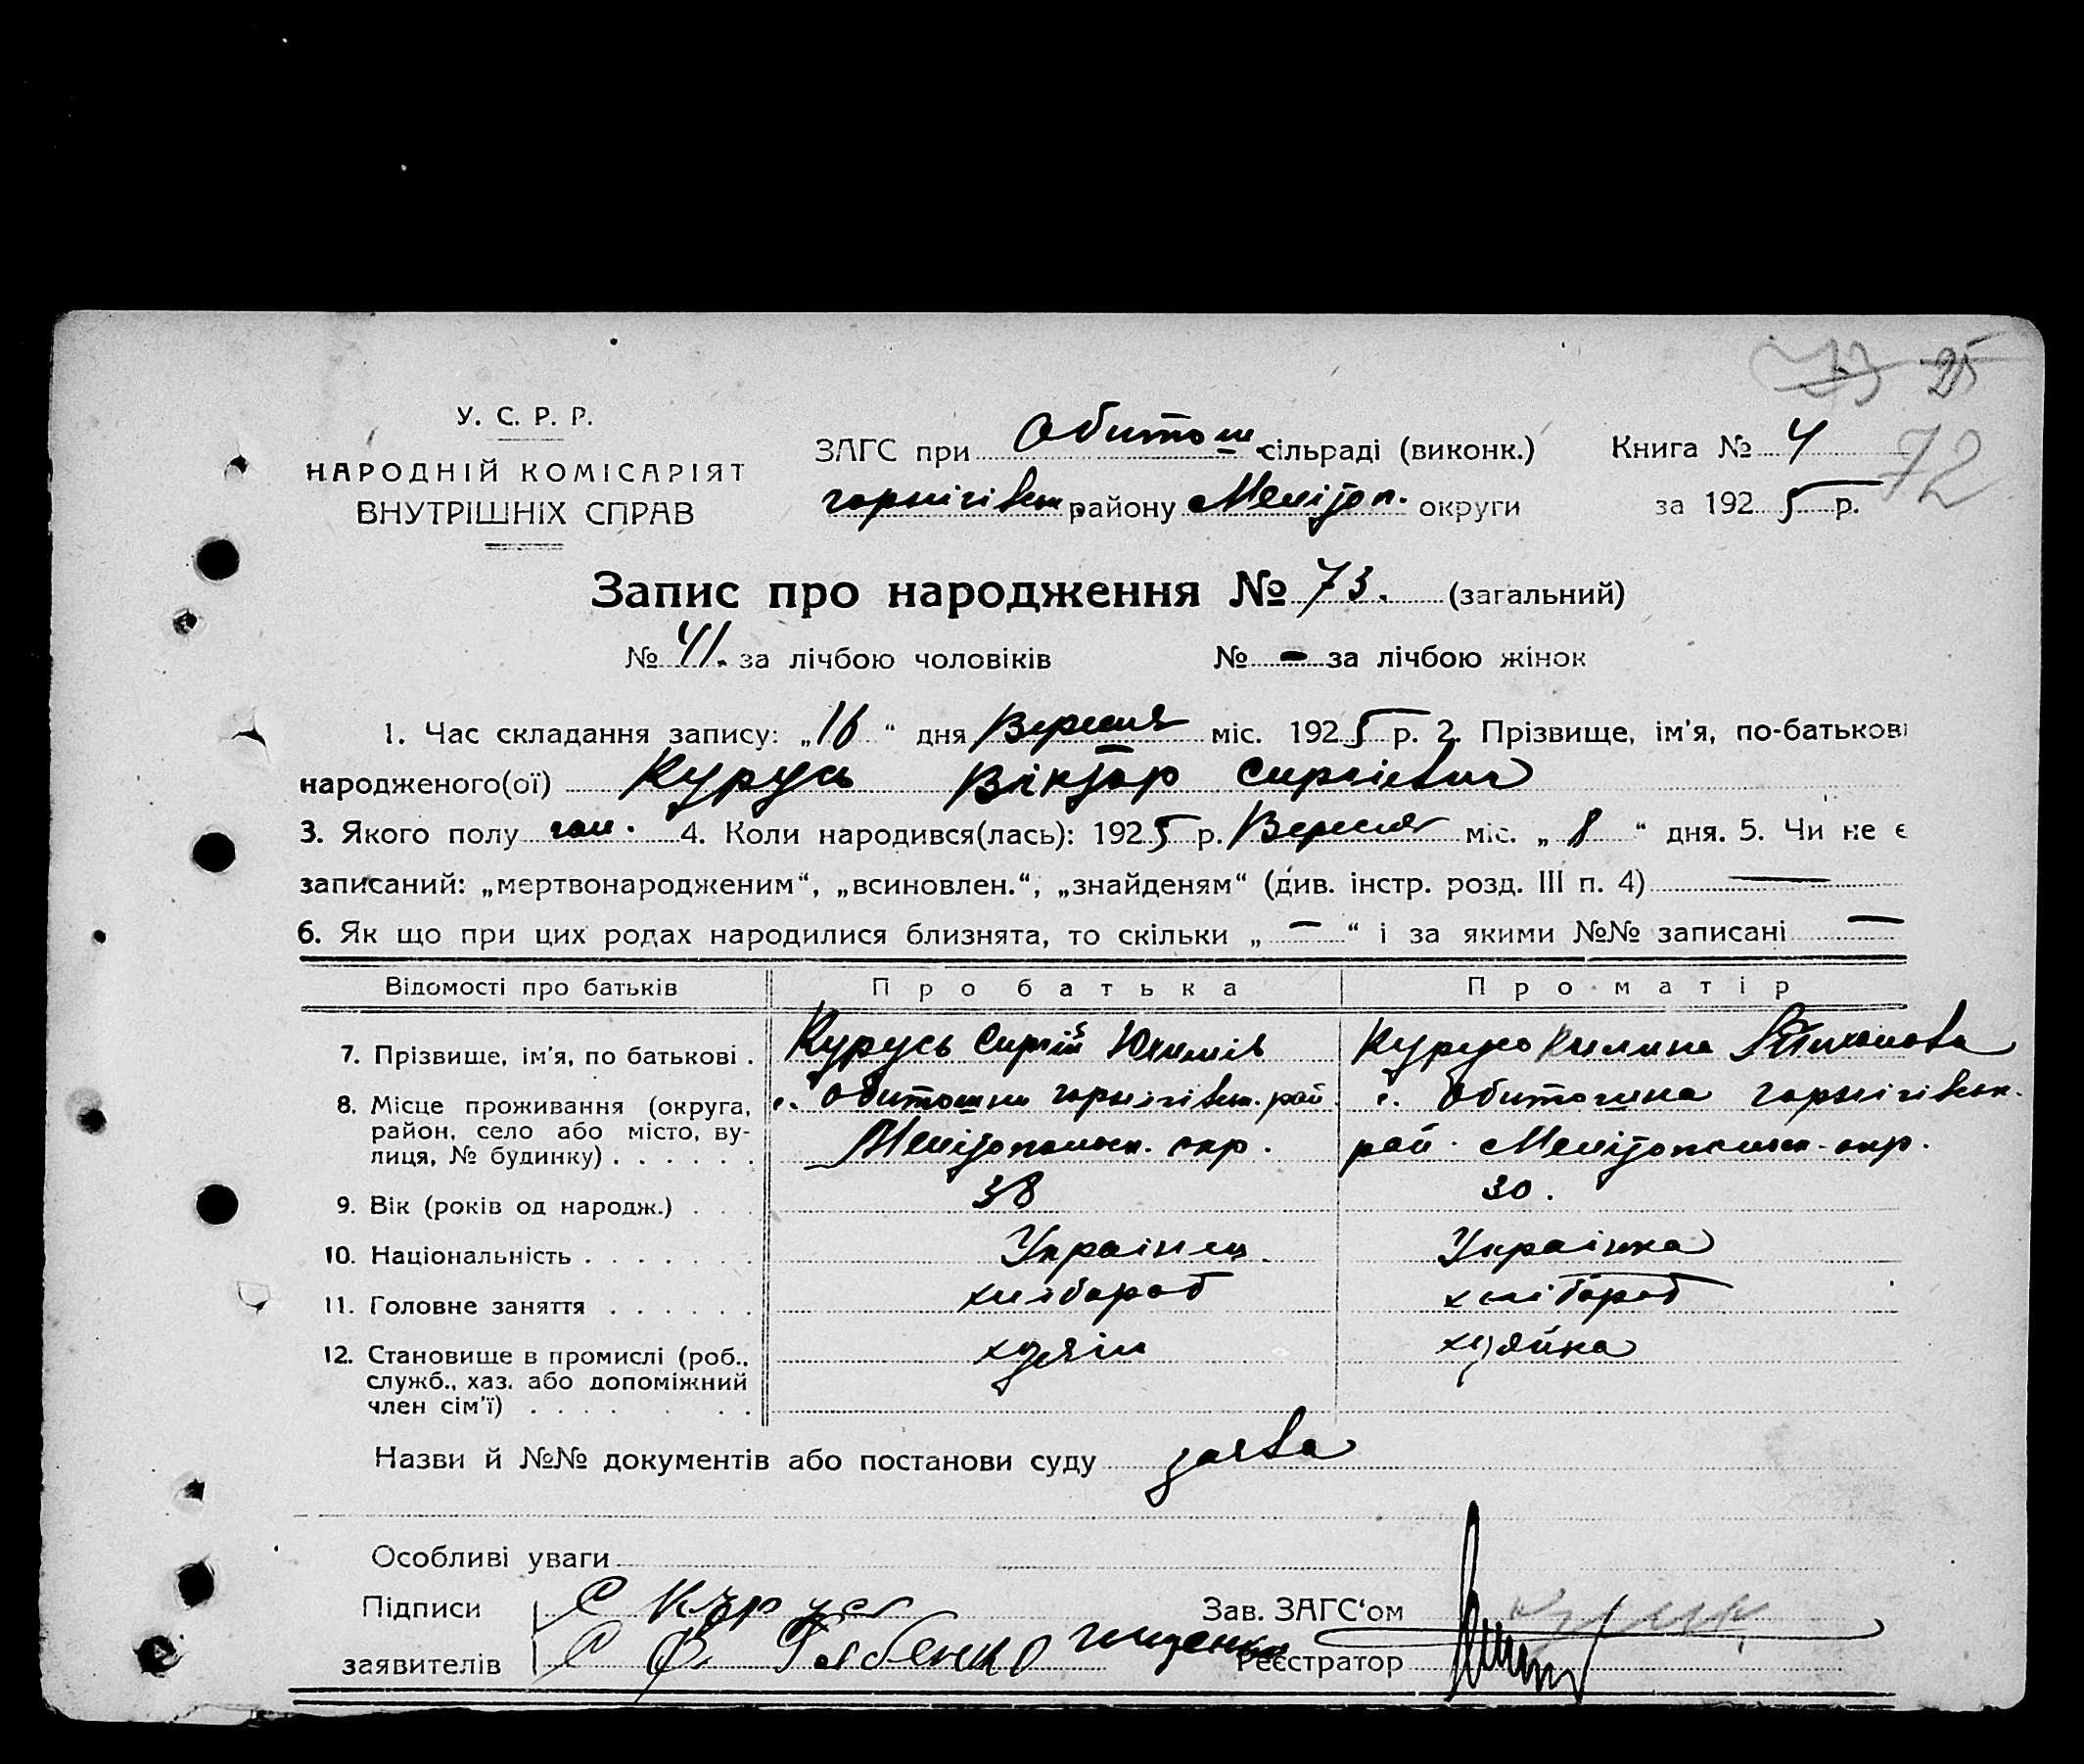 73 25
У. С. Р. Р.
НАРОДНІЙ КОМІСАРІЯТ
ВНУТРІШНІХ СПРАВ
ЗАГС при Обиточ сільраді (виконк.)
Книга № 4
72
чернігівськ району Мелітоп. округи
за 1925 р.
Запис про народження № 73. (загальний)
№ 41. за лічбою чоловіків № – за лічбою жінок
1. Час складання запису: „16“ дня Вересня міс. 1925 р. 2. Прізвище, ім'я, по-батькові
народженого(ої) Курусь Віктор Сиргієвич
3. Якого полу чол. 4. Коли народився(лась): 1925 р. Вересня міс. „ 8 “ дня. 5. Чи не є
записаний: „мертвонародженим“, „всиновлен.“, „знайденям“ (див. інстр. розд. III п. 4) —
6. Як що при цих родах народилися близнята, то скільки „ – “ і за якими №№ записані —
Відомості про батьків Про батька Про матір
7. Прізвище, ім'я, по батькові . Курусь Сиргій Юхимів Курусь Килина
8. Місце проживання (округа, с. Обиточни чернігівськ. рай. с. Обиточна чернігівськ.
район, село або місто, ву- Мелітопольськ. окр. рай. Мелітопольськ. окр.
лиця, № будинку) . . . . . .
9. Вік (років од народж.) . . . 38 30.
10. Національність . . . . . . . Українец Українка
11. Головне заняття . . . . . . хлібороб хлібороб
12. Становище в промислі (роб., хозяїн хозяйка
служб., хаз. або допоміжний
член сім'ї) . . . . . . .
Назви й №№ документів або постанови суду заява
Особливі уваги
Підписи С Курус Зав. ЗАГС‘ом
заявителів Реєстратор